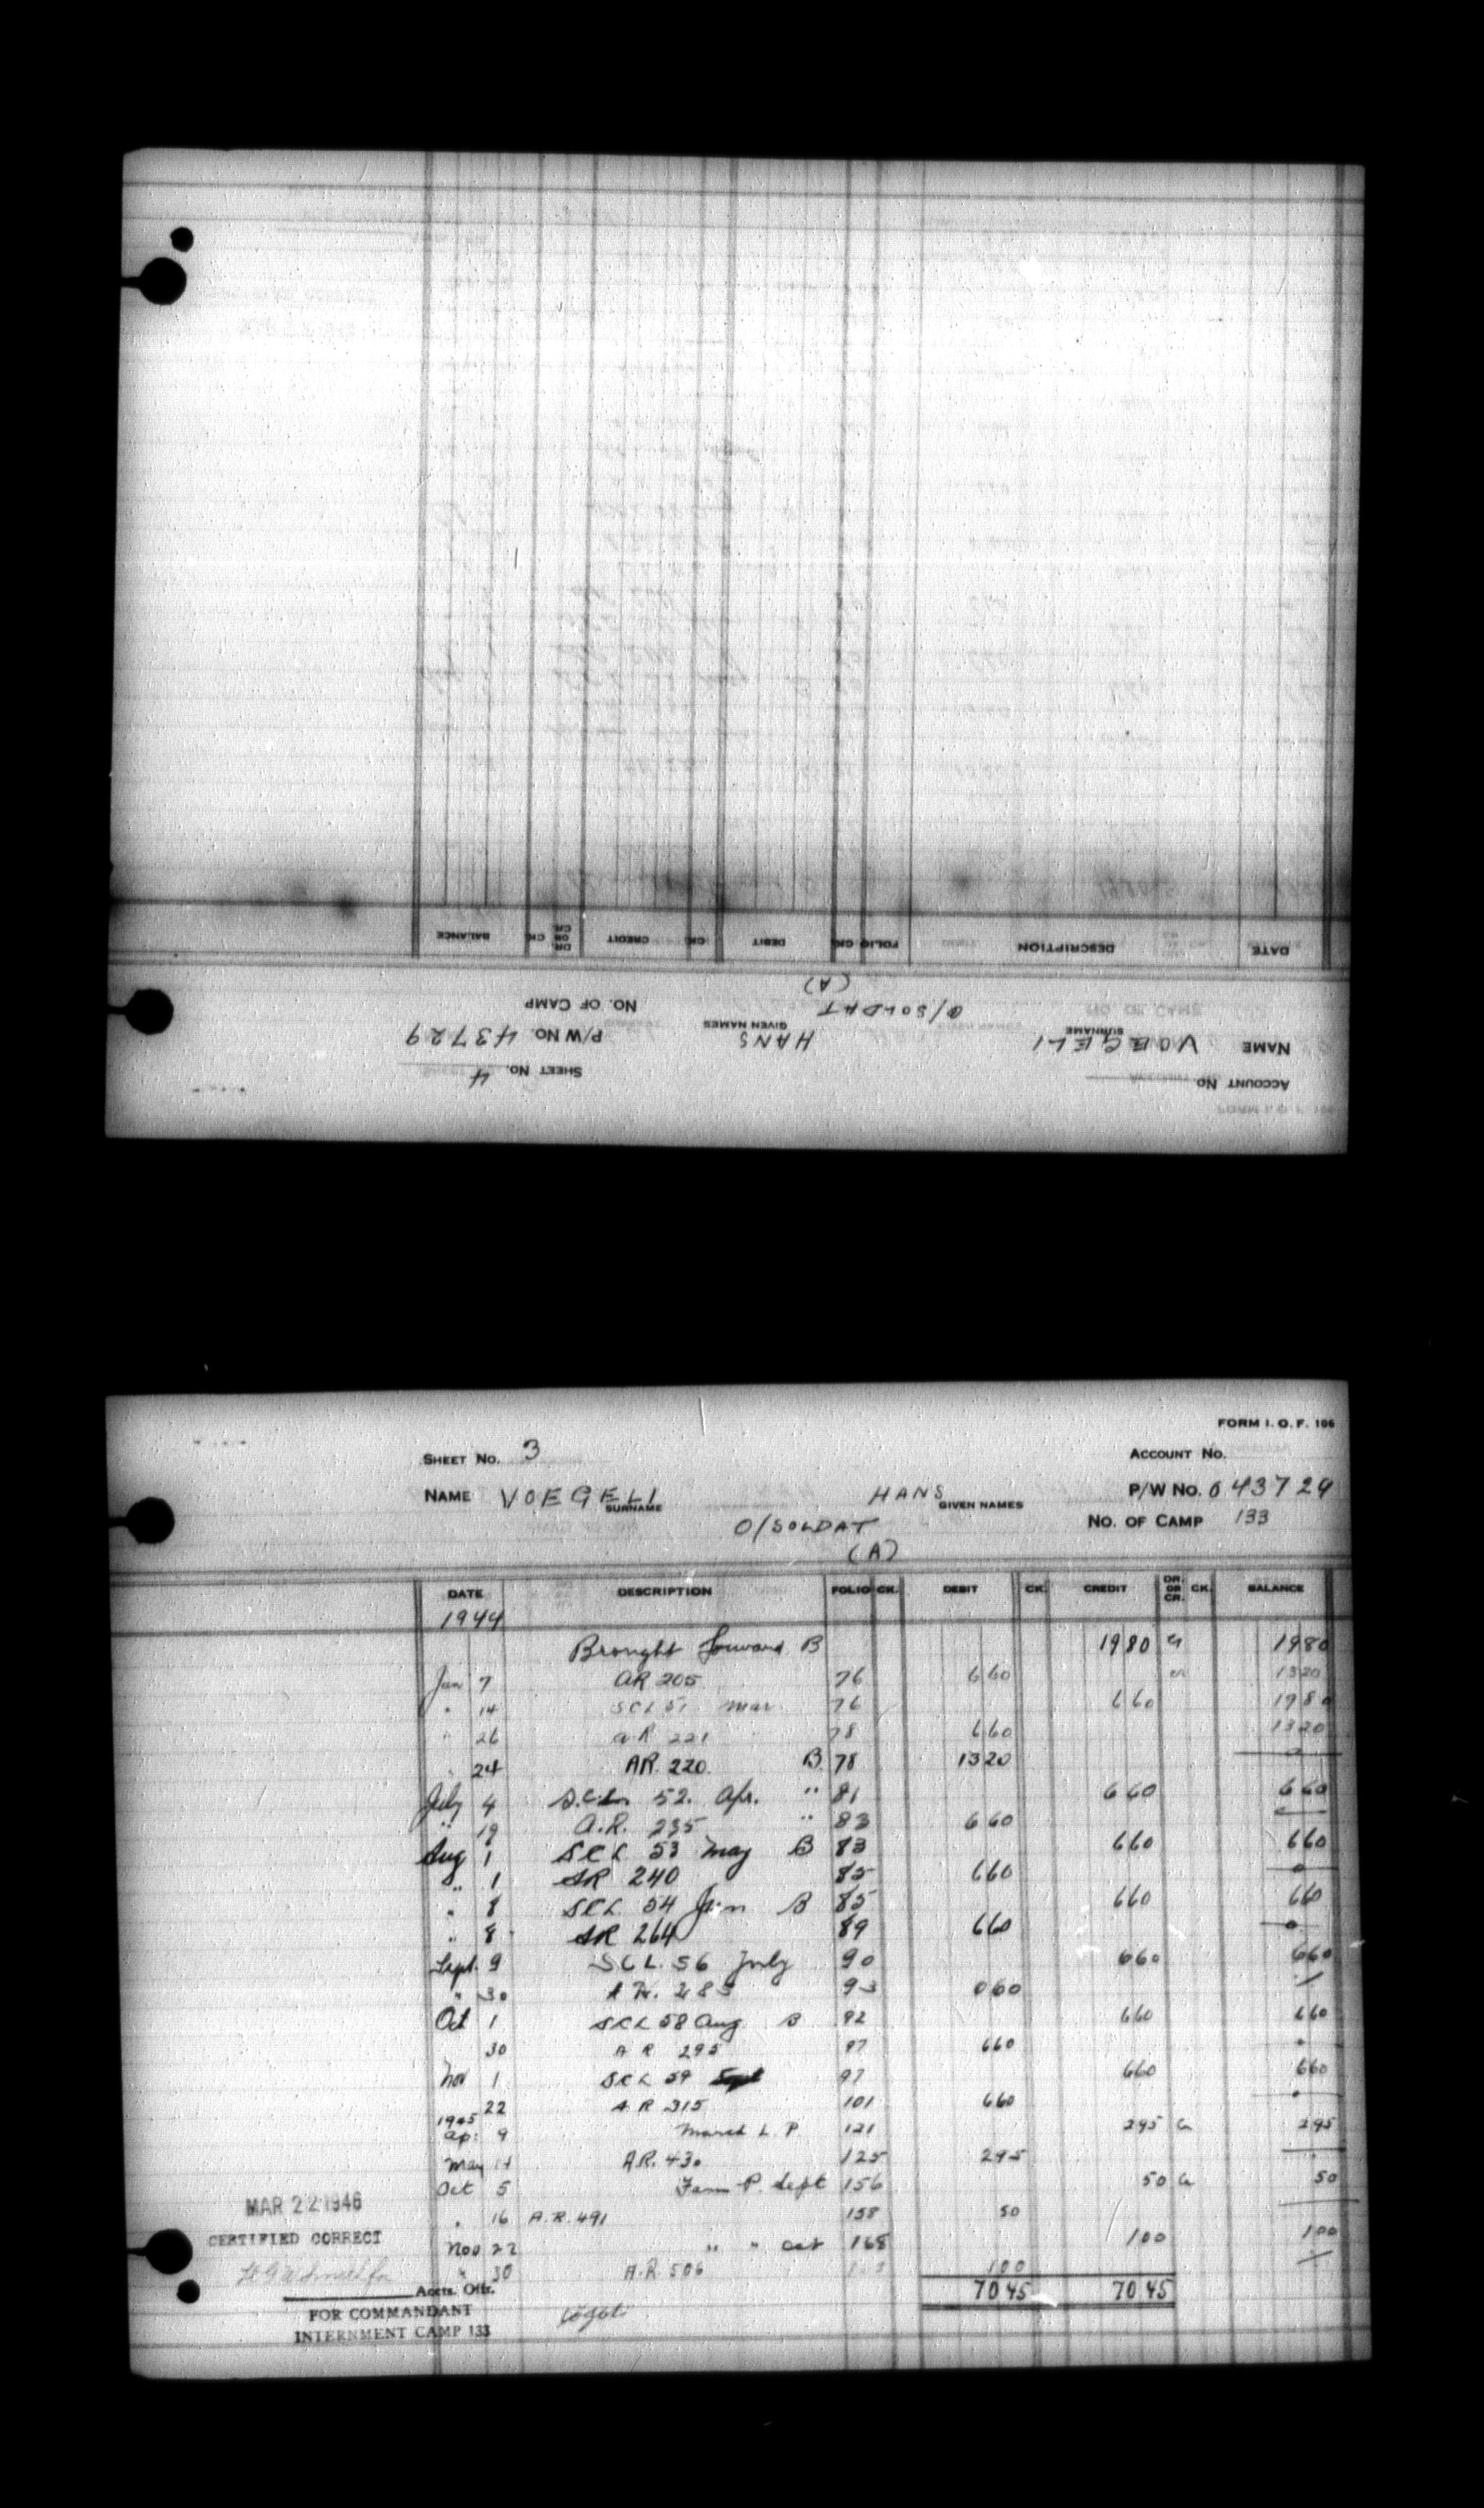 FORM I. O. F. 106
ACCOUNT No.
SHEET No. 4
NAME VOEGELI HANS P/W No. 43729
SURNAME GIVEN NAMES
O/SOLDAT NO. OF CAMP
(A)
DATE DESCRIPTION FOLIO CK. DEBIT CK. CREDIT DR. OR CR. CK. BALANCE
FORM I. O. F. 106
SHEET No. 3 ACCOUNT No.
NAME VOEGELI HANS P/W No. 043729
SURNAME GIVEN NAMES
O/SOLDAT NO. OF CAMP 133
(A)
DATE DESCRIPTION FOLIO CK. DEBIT CK. CREDIT DR. OR CR. CK. BALANCE
1944
Brought forward B 1980 Cr 1980
Jan 7 AR 205 76 660 cr 1320
" 14 SCL 51 Mar. 76 660 1980
" 26 AR 221 78 660 1320
" 24 AR. 220. B 78 1320 0
July 4 S.C.L. 52. Apr. " 81 660 660
" 19 A.R. 235 " 83 660
Aug 1 SCL 53 May B 83 660 660
" 1 AR 240 85 660 0
" 8 SCL 54 Jun B 85 660 660
" 8 AR 264 89 660 0
Sept. 9 SCL. 56 July 90 660 660
" 30 A R. 285 93 660
Oct 1 SCL 58 Aug B 92 660 660
30 A R 295 97 660
Nov 1 SCL 59 Sept 97 660 660
22 A. R 315 101 660
1945
Ap. 9 March L. P. 121 295 Cr 295
May 14 A.R. 430 125 295
Oct 5 Farm P. Sept 156 50 Cr 50
" 16 A.R. 491 158 50
Nov 22 " " Oct 168 100 100
" 30 A.R. 506 100
7045 7045
MAR 22 1946
CERTIFIED CORRECT
Accts. Offr.
FOR COMMANDANT
INTERNMENT CAMP 133